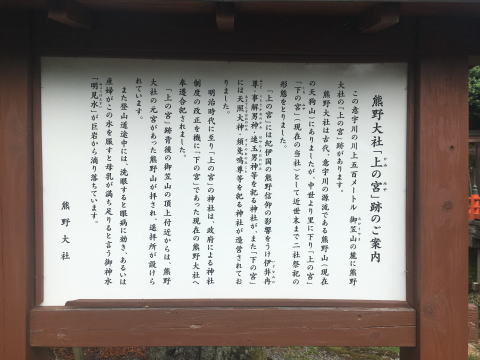 熊野大社「上の宮」跡のご案内
この意宇川の川上五百メートル 御笠山の麓に熊野
大社の「上の宮」跡があります。
熊野大社は古代、意宇川の源流である熊野山（現在
の天狗山）にありましたが、中世より里に下り「上の宮」
「下の宮」（現在の当社）として近世末まで二社祭祀の
形態をとりました。
「上の宮」には紀伊国の熊野信仰の影響をうけ伊弉冉
尊・事解男神・速玉男神等を祀る神社が、また「下の宮」
には天照大神・須佐鳴尊等を祀る神社が造営されてお
りました。
明治時代に至り「上の宮」の神社は、政府による神社
制度の改正を機に「下の宮」であった現在の熊野大社へ
奉遷合祀されました。
「上の宮」跡背後の御笠山の頂上付近からは、熊野
大社の元宮があった熊野山が拝され、遥拝所が設けら
れています。
また登山道途中には、洗眼すると眼病に効き、あるいは
産婦がこの水を服すと母乳が満ち足りると言う御神水
「明見水」が巨岩から滴り落ちています。
熊野大社